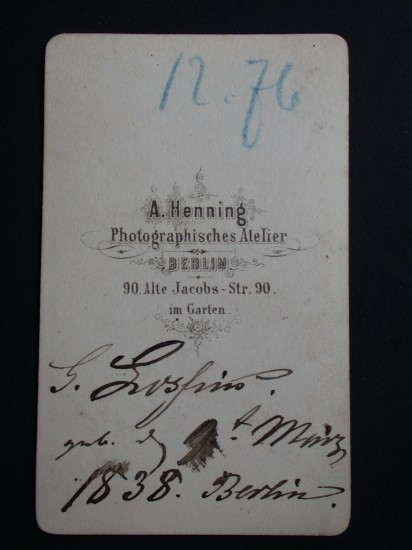 12.76
A. Henning
Photographisches Atelier
BERLIN
90. Alte Jacobs-Str. 90.
im Garten.
G.
geb. d März
1838. Berlin.